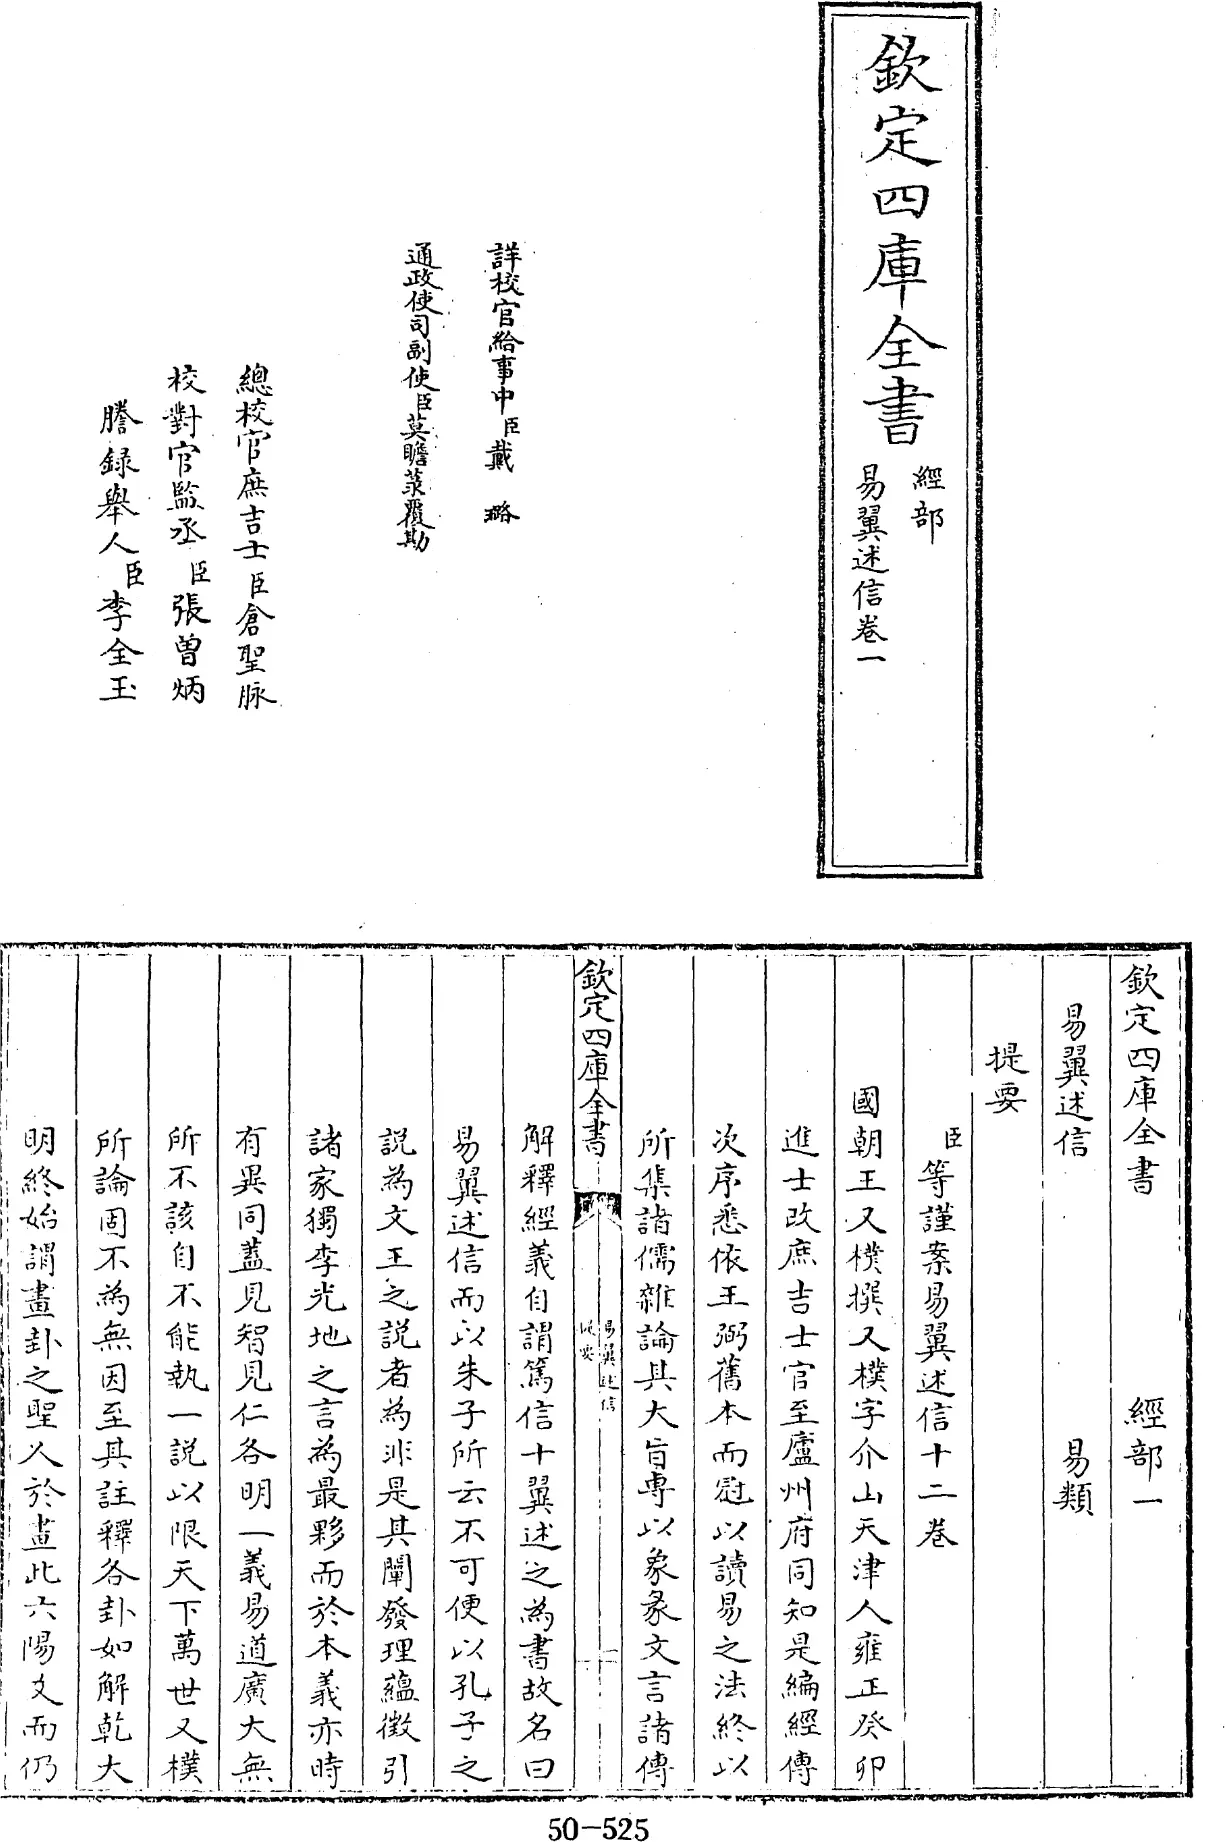 欽定四庫全書
經部
易翼述信卷一
詳校官給事中臣戴璐
通政使司副使臣莫瞻菉覆勘
總校官庶吉士臣倉聖脉
校對官監丞臣張曽炳
謄録舉人臣李全玉
欽定四庫全書 經部一
易翼述信 易類
提要
臣等謹案易翼述信十二卷
國朝王又樸撰又樸字介山天津人雍正癸卯
進士改庶吉士官至廬州府同知是編經傳
次序悉依王弼舊本而冠以讀易之法終以
所集諸儒雜論其大旨専以彖象文言諸傳
欽定四庫全書
易翼述信
提要
一
解釋經義自謂篤信十翼述之為書故名曰
易翼述信而以朱子所云不可便以孔子之
説為文王之説者為非是其闡發理藴徴引
諸家獨李光地之言為最夥而於本義亦時
有異同葢見智見仁各明一義易道廣大無
所不該自不能執一説以限天下萬世又樸
所論固不為無因至其註釋各卦如解乾大
明終始謂畫卦之聖人於畫此六陽爻而仍
50-525